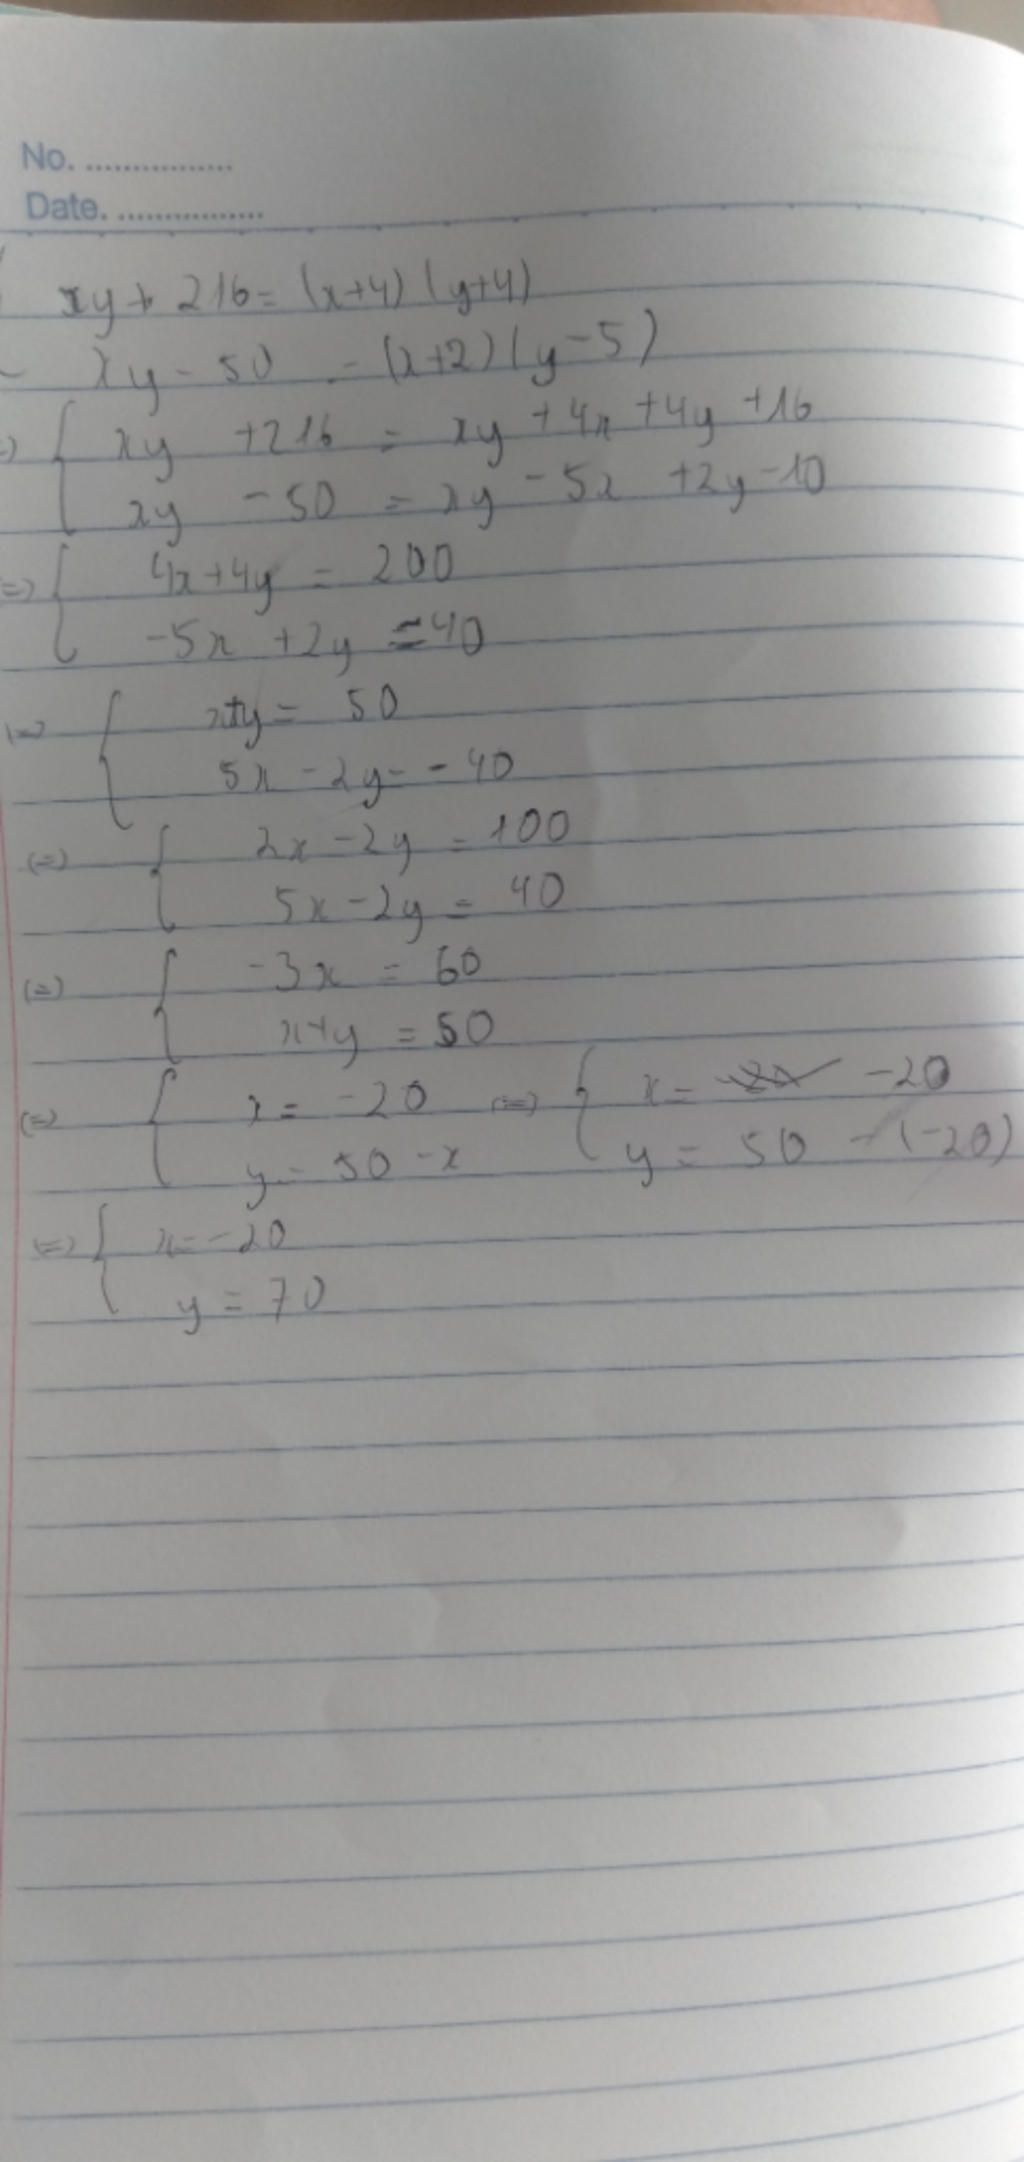 No. ................
Date. ................
xy + 216 = (x+4) (y+4)
xy - 50 = (x+2) (y-5)
=> { xy + 216 = xy + 4x + 4y + 16
xy - 50 = xy - 5x + 2y - 10
=> { 4x + 4y = 200
-5x + 2y = -40
(=> { x+y = 50
5x - 2y = -40
(=) { 2x - 2y = 100
5x - 2y = 40
(=) { -3x = 60
x+y = 50
(=) { x = -20 (=> { x = -20
y = 50 - x y = 50 - (-20)
(=> { x = -20
y = 70